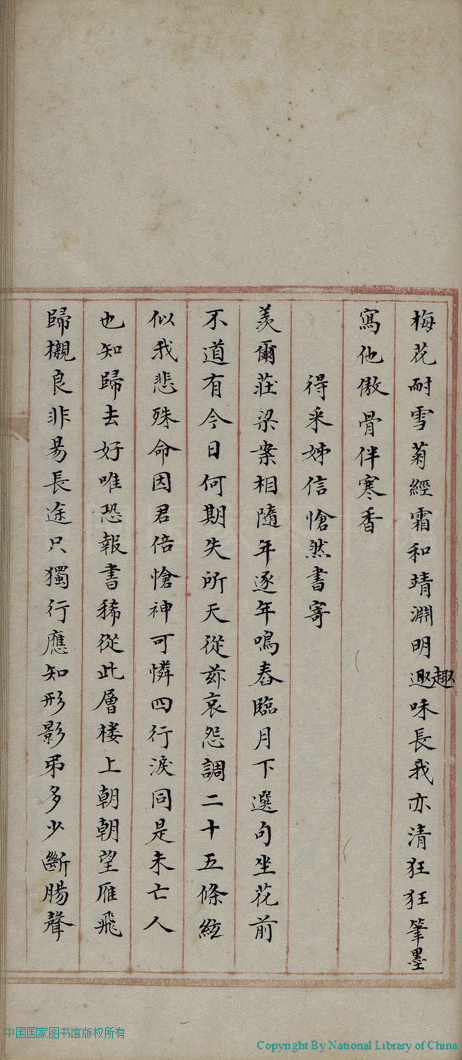 梅花耐雪菊經霜和靖淵明趣味長我亦清狂狂筆墨
趣
寫他傲骨伴寒香
得采姊信愴然書寄
羨爾莊梁案相隨年逐年鳴舂臨月下選句坐花前
不道有今日何期失所天從茲哀怨調二十五條絃
似我悲殊命因君倍愴神可憐四行淚同是未亡人
也知歸去好唯恐報書稀從此層楼上朝朝望雁飛
歸櫬良非易長途只獨行應知形影弔多少斷腸聲
中国国家图书馆版权所有
Copyright By National Library of China